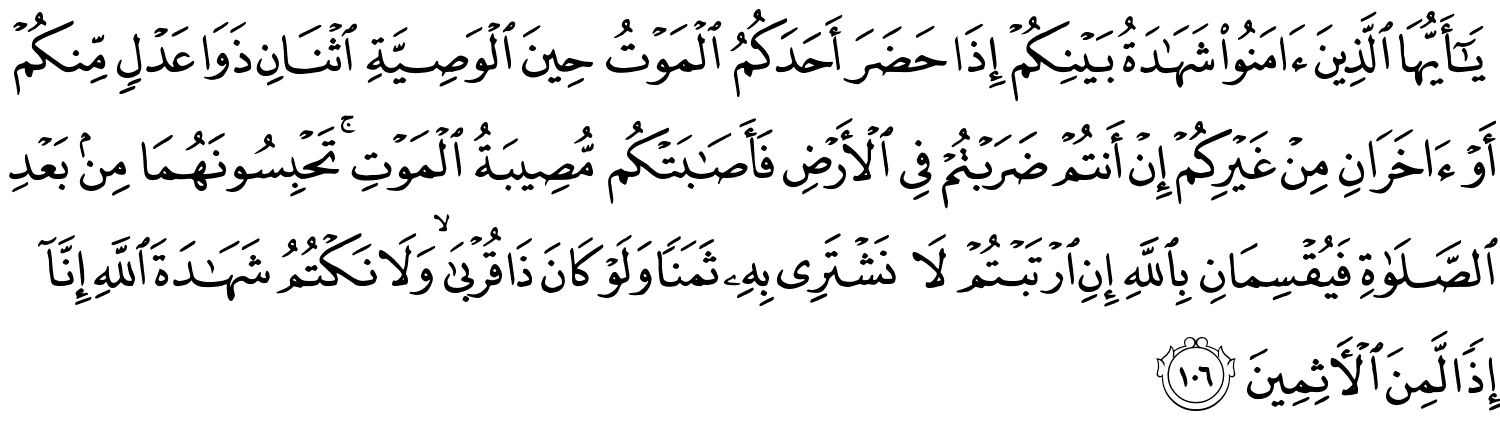 يَٰٓأَيُّهَا ٱلَّذِينَ ءَامَنُوا۟ شَهَٰدَةُ بَيْنِكُمْ إِذَا حَضَرَ أَحَدَكُمُ ٱلْمَوْتُ حِينَ ٱلْوَصِيَّةِ ٱثْنَانِ ذَوَا عَدْلٍ مِّنكُمْ
أَوْ ءَاخَرَانِ مِنْ غَيْرِكُمْ إِنْ أَنتُمْ ضَرَبْتُمْ فِى ٱلْأَرْضِ فَأَصَٰبَتْكُم مُّصِيبَةُ ٱلْمَوْتِ ۚ تَحْبِسُونَهُمَا مِنۢ بَعْدِ
ٱلصَّلَوٰةِ فَيُقْسِمَانِ بِٱللَّهِ إِنِ ٱرْتَبْتُمْ لَا نَشْتَرِى بِهِۦ ثَمَنًا وَلَوْ كَانَ ذَا قُرْبَىٰ ۙ وَلَا نَكْتُمُ شَهَٰدَةَ ٱللَّهِ إِنَّآ
إِذًا لَّمِنَ ٱلْـَٔاثِمِينَ ١٠٦